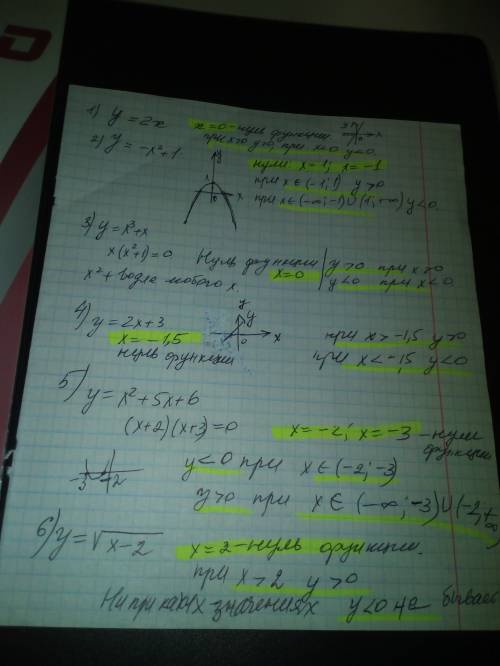 1) y = 2x x = 0 - нуль функции
при x>0 y>0, при x<0 y<0.
2) y = -x²+1
нули x = 1; x = -1
при x ∈ (-1; 1) y > 0
при x ∈ (-∞; -1) ∪ (1; +∞) y < 0.
3) y = x³+x
x(x²+1) = 0 Нуль функции x = 0
y > 0 при x > 0
y < 0 при x < 0.
x²+1 > 0 для любого x.
4) y = 2x+3
x = -1,5
нуль функции
y
0 x
при x > -1,5 y > 0
при x < -1,5 y < 0
5) y = x²+5x+6
(x+2)(x+3) = 0 x = -2; x = -3 - нули функции
-3 -2
y < 0 при x ∈ (-2; -3)
y > 0 при x ∈ (-∞; -3) ∪ (-2; +∞)
6) y = √x-2 x = 2 - нуль функции.
при x > 2 y > 0
Ни при каких значениях y < 0 не бывает